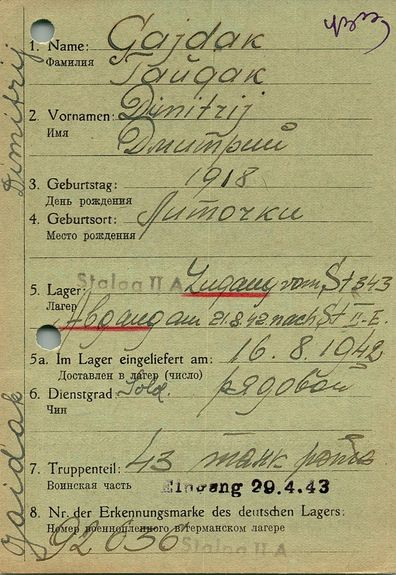 1. Name: Gajdak
Фамилия Гайдак
2. Vornamen: Dimitrij
Имя Дмитрий
3. Geburtstag: 1918
День рождения
4. Geburtsort: Литочки
Место рождения
Stalag II A
5. Lager: Zugang vom St 343
Лагер
Abgang am 21.8.42 nach St II-E.
5a. Im Lager eingeliefert am: 16.8.1942
Доставлен в лагер (число)
6. Dienstgrad: Sold. рядовой
Чин
7. Truppenteil: 43 танк
Воинская часть
Eingang 29.4.43
8. Nr. der Erkennungsmarke des deutschen Lagers:
Номер военнопленного в германском лагере
92056
Stalag II A
Dimitrij
Gajdak